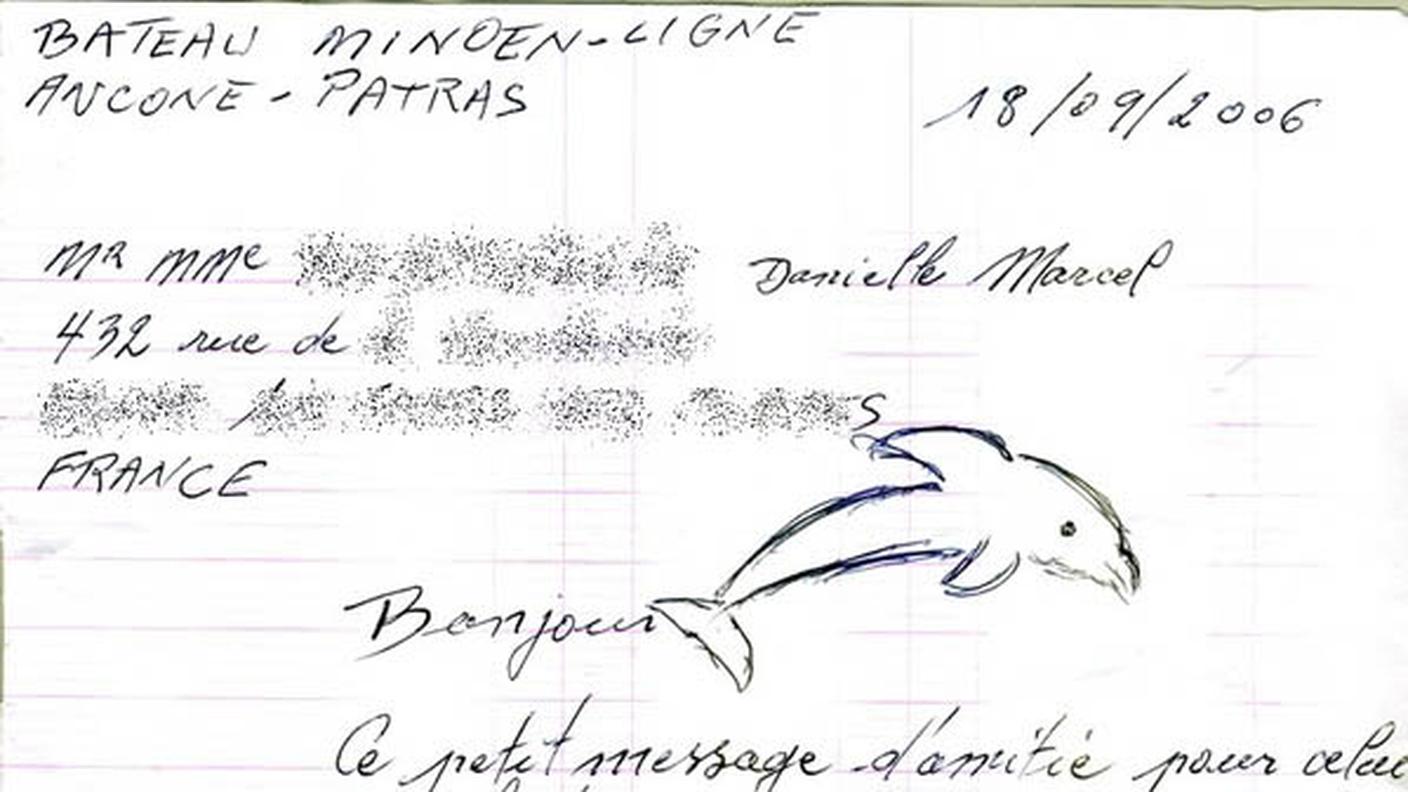 BATEAU MINOEN-LIGNE
ANCONE - PATRAS
18/09/2006
MR MME Danielle Marcel
432 rue de
S
FRANCE
Bonjour
Ce petit message d'amitié pour celui